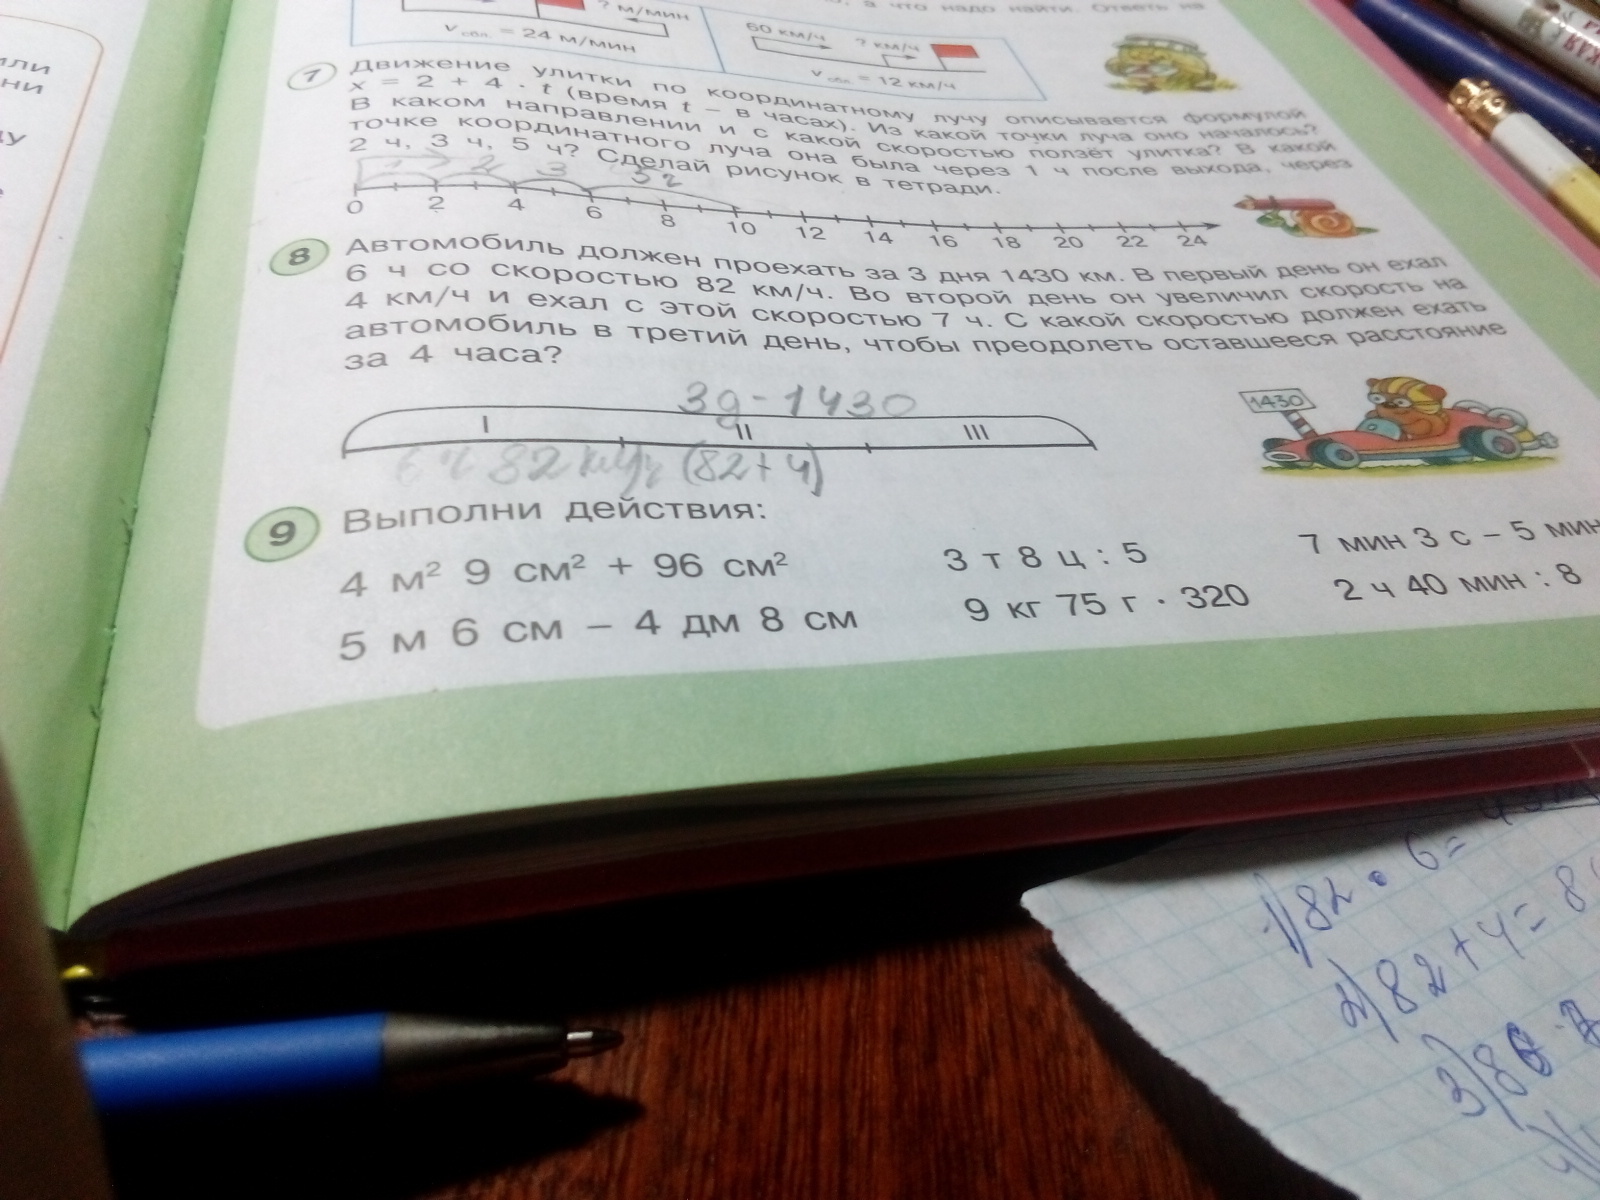 а что надо найти. Ответь на
? м/мин
v сбл. = 24 м/мин
60 км/ч
? км/ч
v сбл. = 12 км/ч
7 Движение улитки по координатному лучу описывается формулой
x = 2 + 4 · t (время t – в часах). Из какой точки луча оно началось?
В каком направлении и с какой скоростью ползёт улитка? В какой
точке координатного луча она была через 1 ч после выхода, через
2 ч, 3 ч, 5 ч? Сделай рисунок в тетради.
1 2 3
0 2 4 6 8 10 12 14 16 18 20 22 24
8 Автомобиль должен проехать за 3 дня 1430 км. В первый день он ехал
6 ч со скоростью 82 км/ч. Во второй день он увеличил скорость на
4 км/ч и ехал с этой скоростью 7 ч. С какой скоростью должен ехать
автомобиль в третий день, чтобы преодолеть оставшееся расстояние
за 4 часа?
3д - 1430
I II III
6 ч 82 км/ч (82+4)
1430
9 Выполни действия:
4 м² 9 см² + 96 см²
5 м 6 см – 4 дм 8 см
3 т 8 ц : 5
9 кг 75 г · 320
7 мин 3 с – 5 мин
2 ч 40 мин : 8
или
ни
1) 82 · 6 =
2) 82 + 4 = 8
3) 86 ·